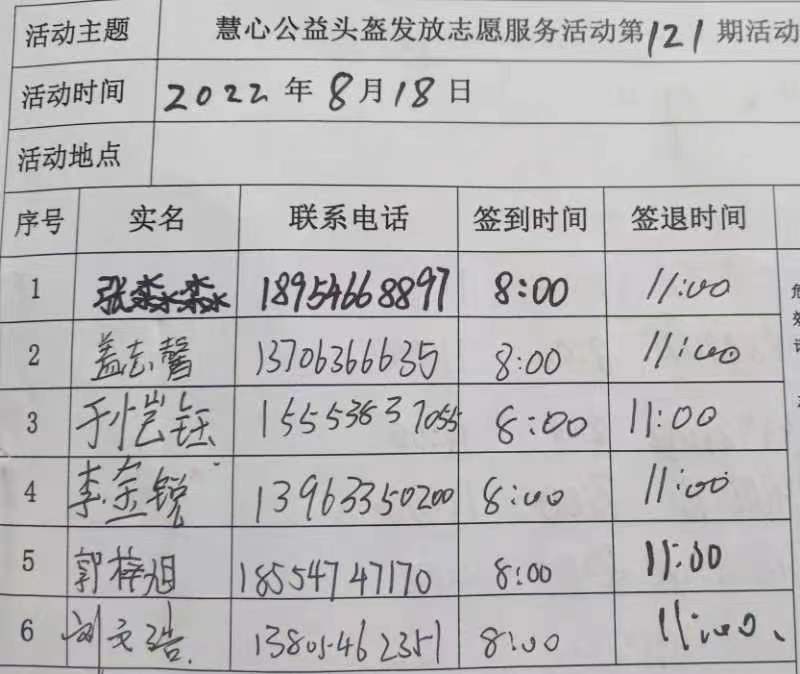 活动主题 慧心公益头盔发放志愿服务活动第121期活动
活动时间 2022年8月18日
活动地点
序号 实名 联系电话 签到时间 签退时间
1 张淼淼 18954668897 8:00 11:00
2 盖志馨 13706366635 8:00 11:00
3 于恺钰 15553837055 8:00 11:00
4 李金锐 13963350200 8:00 11:00
5 郭梓旭 18554747170 8:00 11:00
6 刘文浩 13805462351 8:00 11:00